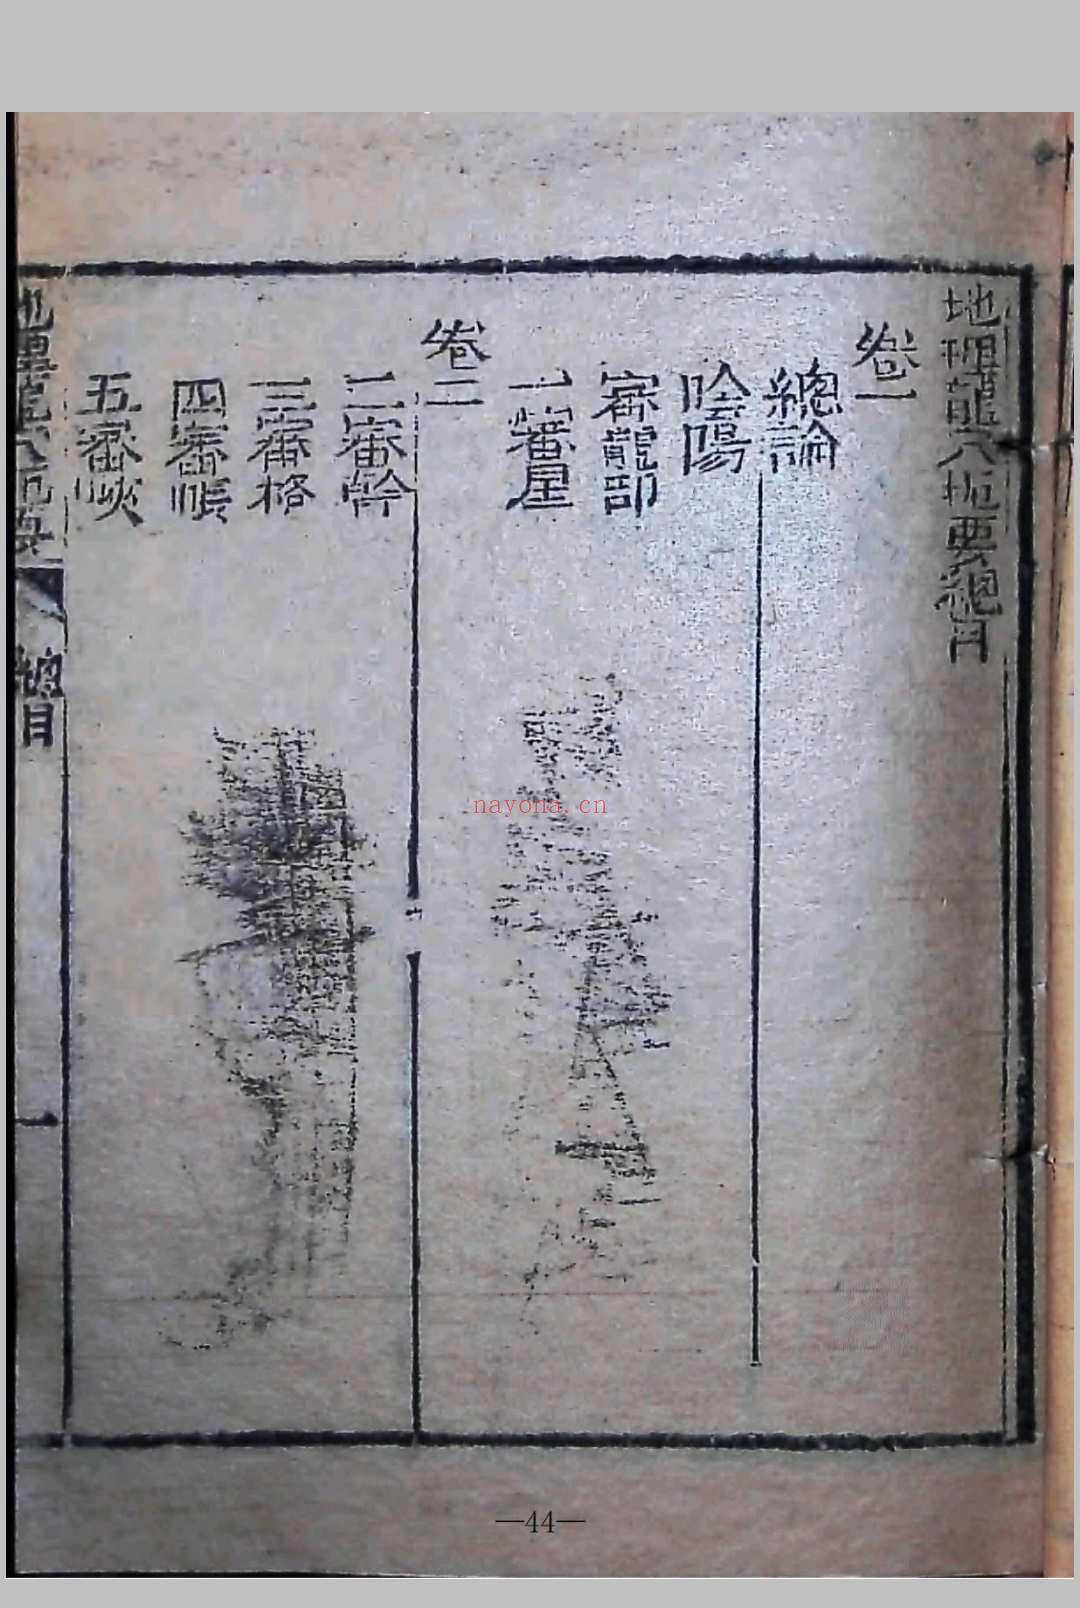 地理龍穴扼要總目
卷一
總論
陰陽
審龍部
一審星
卷二
二審幹
三審格
四審帳
五審峽
總目
一
nayona.cn
—44—